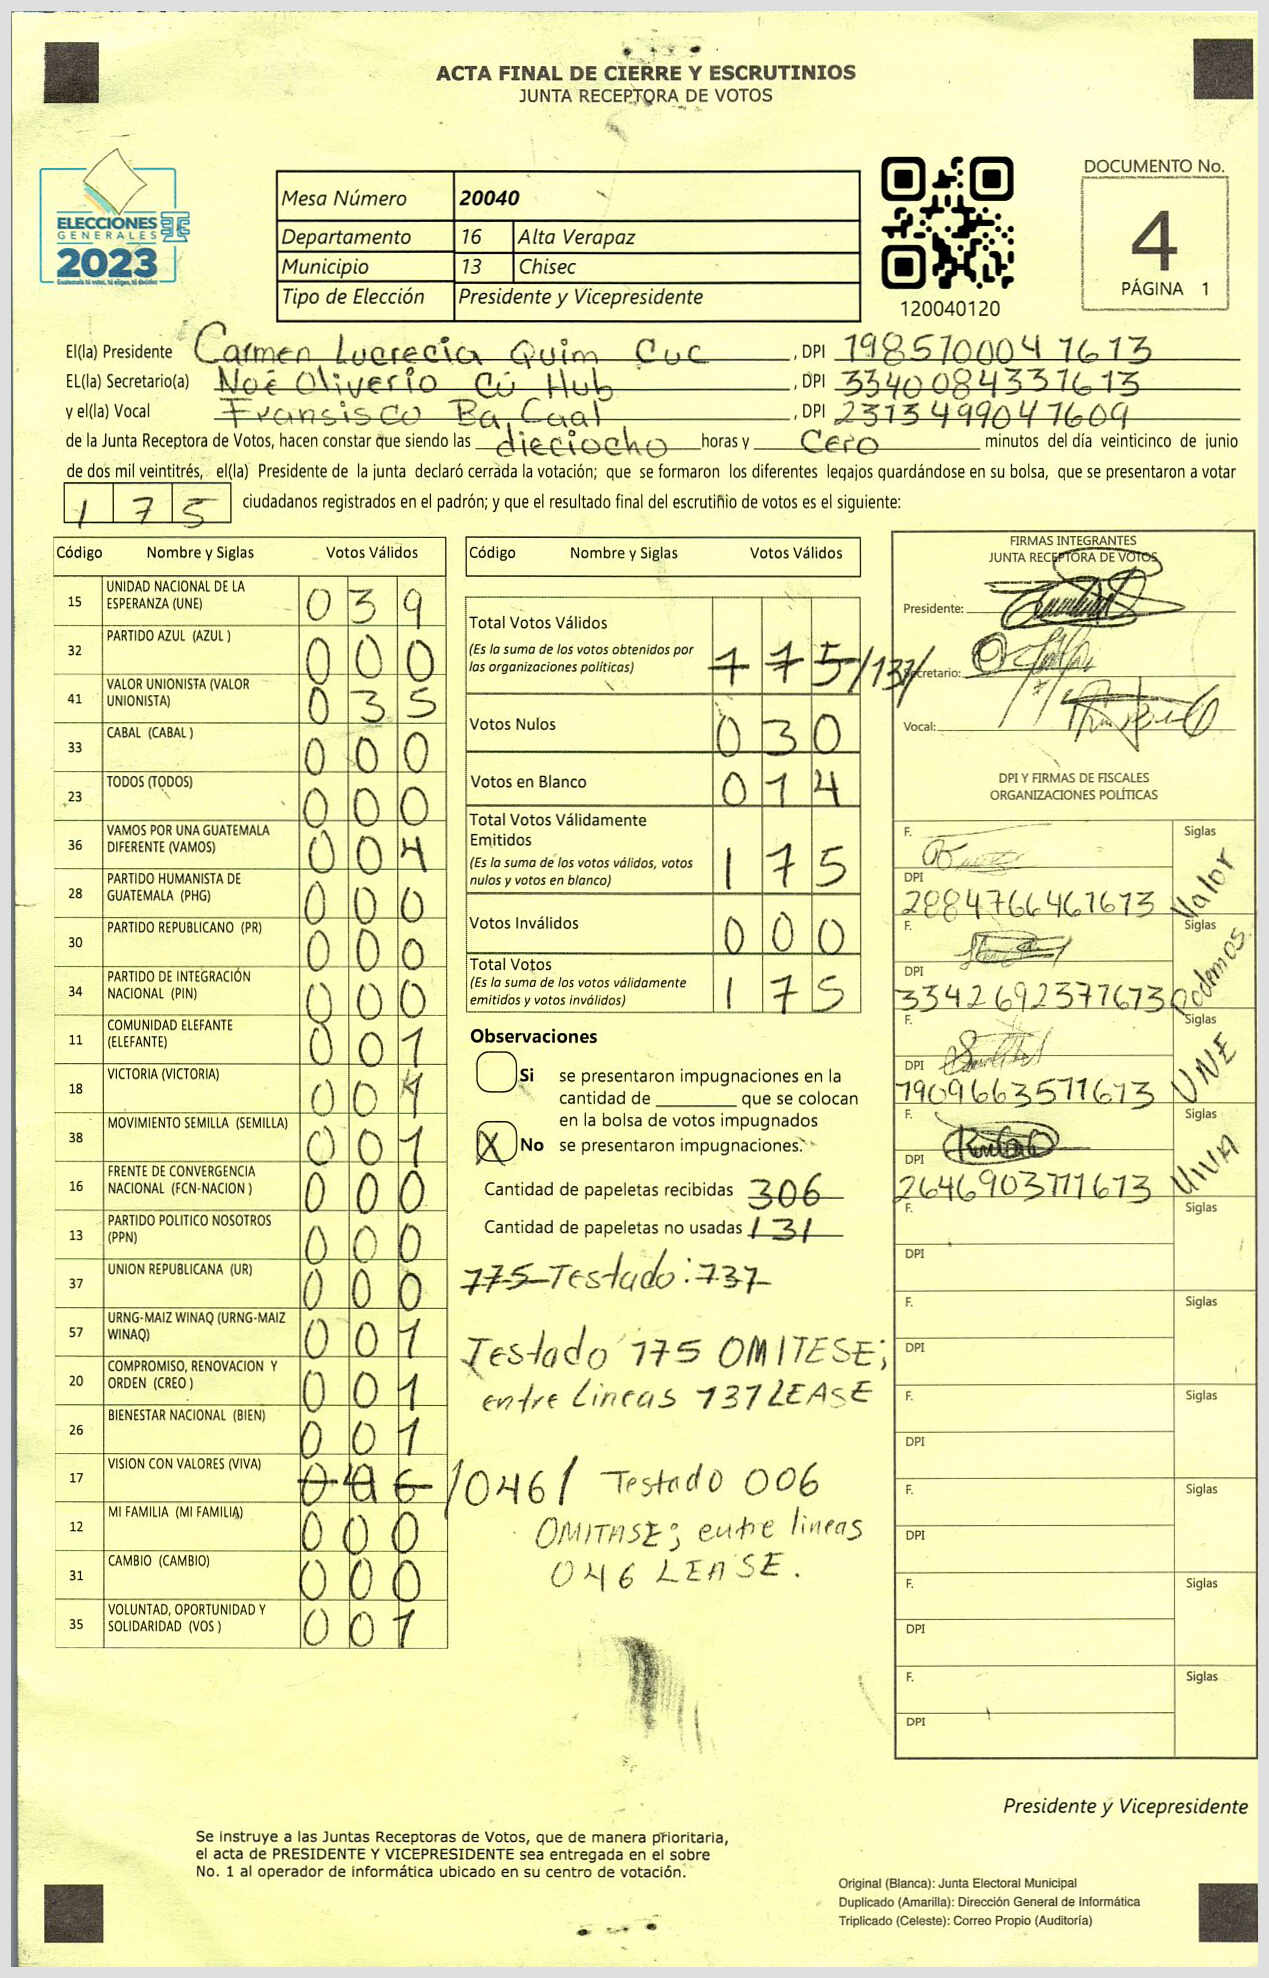 ACTA FINAL DE CIERRE Y ESCRUTINIOS
JUNTA RECEPTORA DE VOTOS
ELECCIONES
GENERALES
2023
TSE
Mesa Número 20040
Departamento 16 Alta Verapaz
Municipio 13 Chisec
Tipo de Elección Presidente y Vicepresidente
120040120
DOCUMENTO No.
4
PÁGINA 1
El(la) Presidente Carmen Lucrecia Quim Cuc , DPI 1985700041613
EL(la) Secretario(a) Noé Oliverio Cú Hub , DPI 3340084331613
y el(la) Vocal Fransisco Ba Caal , DPI 2313499041609
de la Junta Receptora de Votos, hacen constar que siendo las dieciocho horas y Cero minutos del día veinticinco de junio
de dos mil veintitrés, el(la) Presidente de la junta declaró cerrada la votación; que se formaron los diferentes legajos guardándose en su bolsa, que se presentaron a votar
175 ciudadanos registrados en el padrón; y que el resultado final del escrutinio de votos es el siguiente:
Código Nombre y Siglas Votos Válidos
15 UNIDAD NACIONAL DE LA ESPERANZA (UNE) 039
32 PARTIDO AZUL (AZUL ) 000
41 VALOR UNIONISTA (VALOR UNIONISTA) 035
33 CABAL (CABAL ) 000
23 TODOS (TODOS) 000
36 VAMOS POR UNA GUATEMALA DIFERENTE (VAMOS) 004
28 PARTIDO HUMANISTA DE GUATEMALA (PHG) 000
30 PARTIDO REPUBLICANO (PR) 000
34 PARTIDO DE INTEGRACIÓN NACIONAL (PIN) 000
11 COMUNIDAD ELEFANTE (ELEFANTE) 001
18 VICTORIA (VICTORIA) 00
38 MOVIMIENTO SEMILLA (SEMILLA) 001
16 FRENTE DE CONVERGENCIA NACIONAL (FCN-NACION ) 000
13 PARTIDO POLITICO NOSOTROS (PPN) 000
37 UNION REPUBLICANA (UR) 000
57 URNG-MAIZ WINAQ (URNG-MAIZ WINAQ) 001
20 COMPROMISO, RENOVACION Y ORDEN (CREO ) 001
26 BIENESTAR NACIONAL (BIEN) 001
17 VISION CON VALORES (VIVA) 006 /046/
12 MI FAMILIA (MI FAMILIA) 000
31 CAMBIO (CAMBIO) 000
35 VOLUNTAD, OPORTUNIDAD Y SOLIDARIDAD (VOS ) 001
Código Nombre y Siglas Votos Válidos
Total Votos Válidos
(Es la suma de los votos obtenidos por
las organizaciones políticas) 175 /131/
Votos Nulos 030
Votos en Blanco 014
Total Votos Válidamente
Emitidos
(Es la suma de los votos válidos, votos
nulos y votos en blanco) 175
Votos Inválidos 000
Total Votos
(Es la suma de los votos válidamente
emitidos y votos inválidos) 175
Observaciones
Si se presentaron impugnaciones en la
cantidad de ________ que se colocan
en la bolsa de votos impugnados
X No se presentaron impugnaciones.
Cantidad de papeletas recibidas 306
Cantidad de papeletas no usadas 131
175 Testado: 131
Testado 175 OMITESE;
entre Lineas 131 LEASE
Testado 006
OMITASE; entre lineas
046 LEASE.
FIRMAS INTEGRANTES
JUNTA RECEPTORA DE VOTOS
Presidente:
Secretario:
Vocal:
DPI Y FIRMAS DE FISCALES
ORGANIZACIONES POLÍTICAS
F. Siglas
DPI 2884766461613 Valor
F. Siglas
DPI 3342692371613 Podemos
F. Siglas
DPI 1909663571613 UNE
F. Siglas
DPI 2646903711613 VIVA
F. Siglas
DPI
F. Siglas
DPI
F. Siglas
DPI
F. Siglas
DPI
F. Siglas
DPI
F. Siglas
DPI
Presidente y Vicepresidente
Se instruye a las Juntas Receptoras de Votos, que de manera prioritaria,
el acta de PRESIDENTE Y VICEPRESIDENTE sea entregada en el sobre
No. 1 al operador de informática ubicado en su centro de votación.
Original (Blanca): Junta Electoral Municipal
Duplicado (Amarilla): Dirección General de Informática
Triplicado (Celeste): Correo Propio (Auditoría)